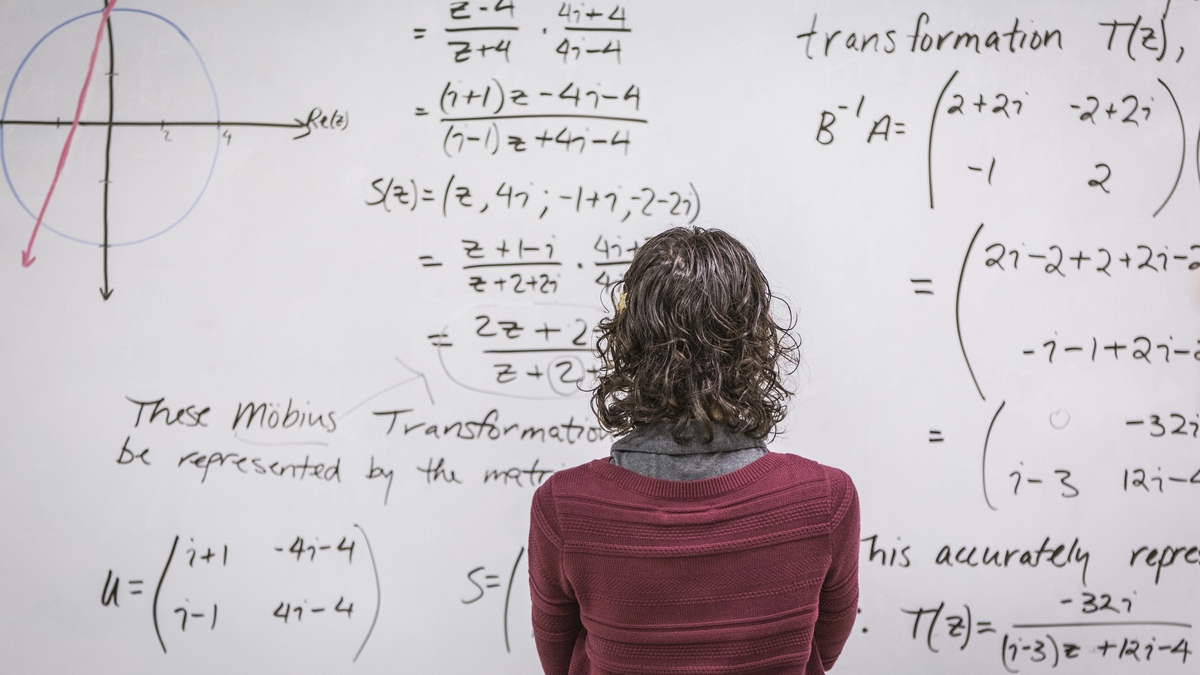 Re(z)
2
4
= z-4/z+4 · 4i+4/4i-4
= (i+1)z-4i-4/(i-1)z+4i-4
S(z)=(z, 4i; -1+i, -2-2i)
= z+1-i/z+2+2i · 4i+
= 2z+2/z+2
These Möbius Transformation
be represented by the matri
U= (i+1 -4i-4
i-1 4i-4)
S=(
transformation T(z),
B⁻¹A= (2+2i -2+2i
-1 2)
= (2i-2+2+2i-2
-i-1+2i-2
= (0 -32i
i-3 12i-4
This accurately repre
: T(z)= -32i/(i-3)z+12i-4